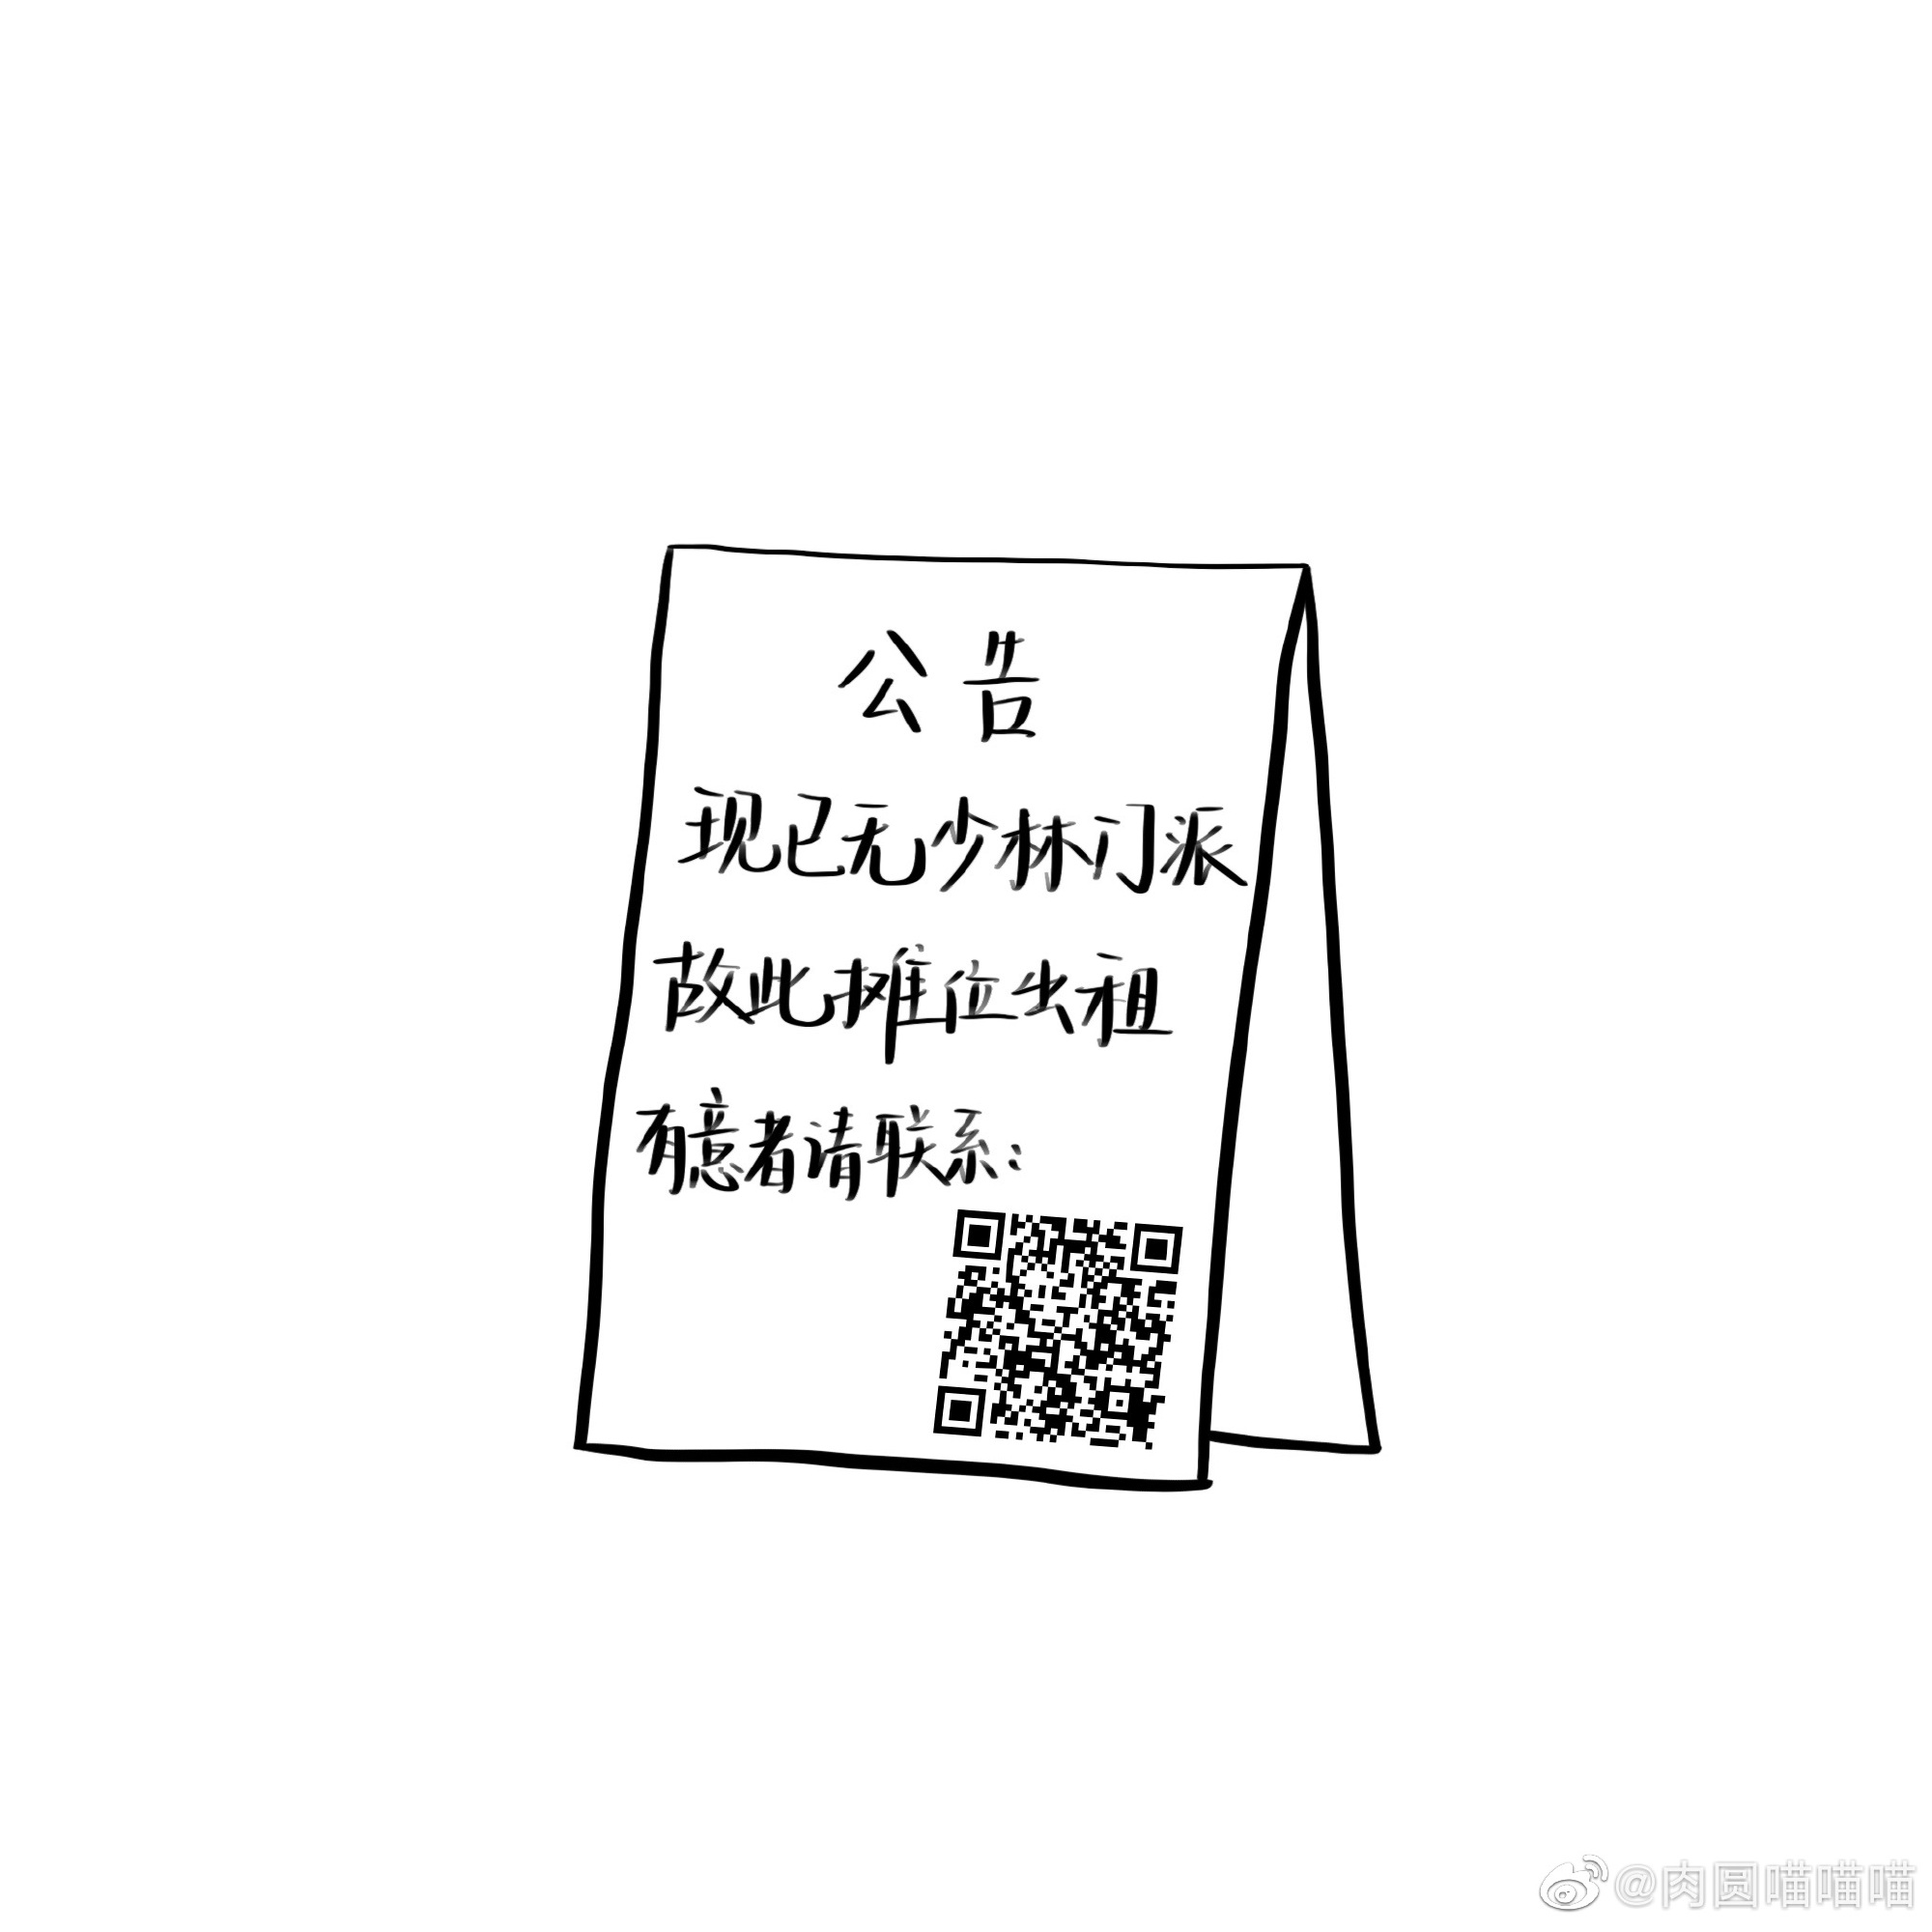 公告
现已无少林门派
故此摊位出租
有意者请联系:
@肉圆喵喵喵